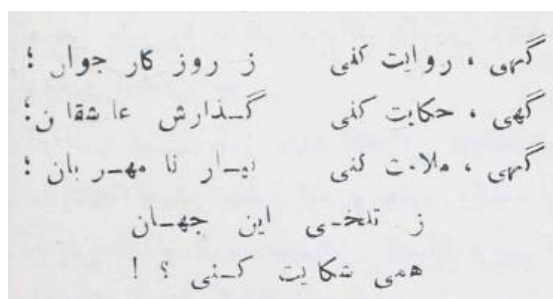 گهی ، روایت کنی ز روز کار جوان ؛
گهی ، حکایت کنی گـذارش عاشقان ؛
گهی ، ملامت کنی بیـار نا مهـر بان ؛
ز تلخـی این جهـان
همی شکایت کـنی ؟ !